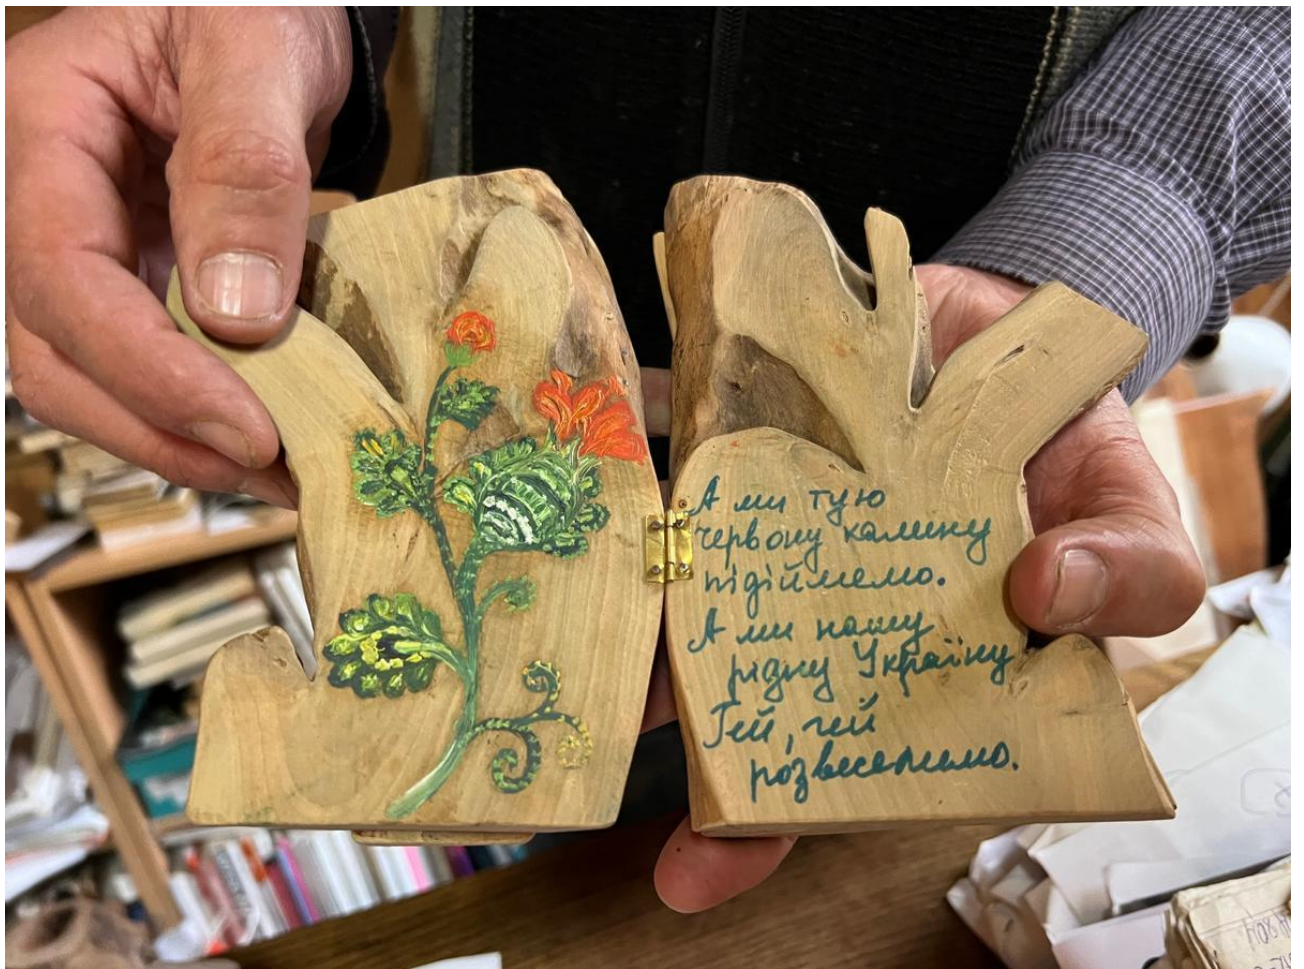 А ми тую
червону калину
підіймемо.
А ми нашу
рідну Україну
Гей, гей
розвеселимо.